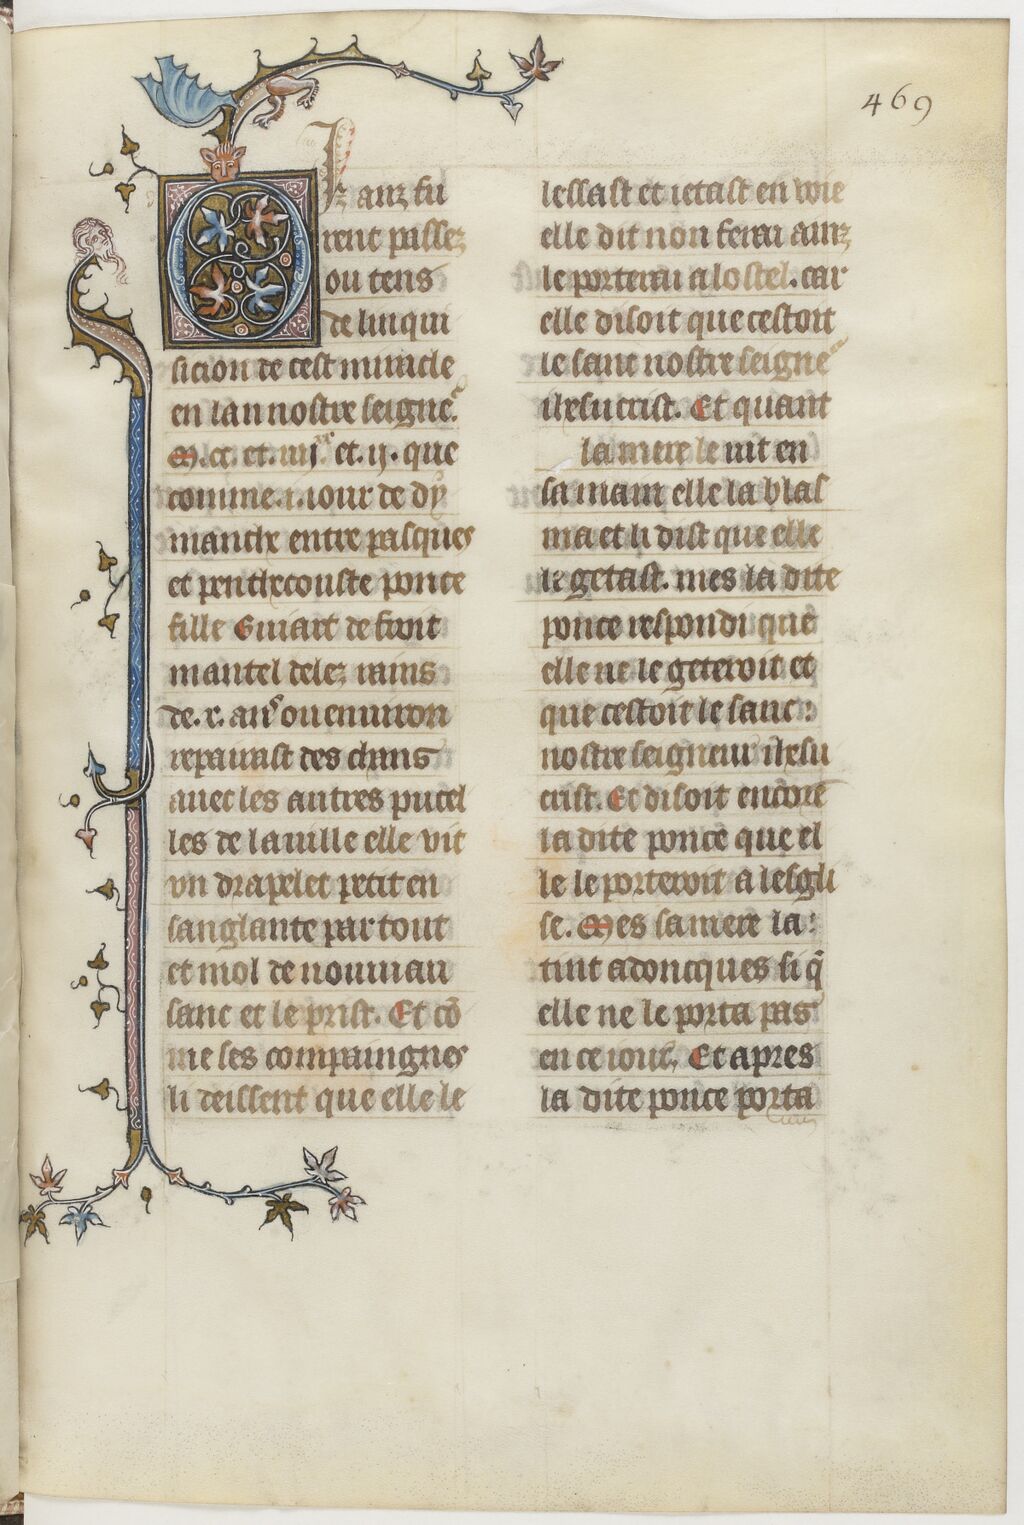 469
Ix anz fu
rent passez
ou tens
de linqui
sicion de cest miracle
en lan nostre seigneᷣ
M.cc. et. iiijˣˣ. et. ij. que
comme .i. iour de dy
manche entre pasques
et penthecouste ponce
fille Guiart de froit
mantel delez rains
de .x. anˢ ou enuiron
repairast des chans
auec les autres pucel
les de la uille elle vit
vn drapelet petit en
sanglante par tout
et mol de nouuiau
sanc et le prist. Et cō
me ses compaingnes
li deissent que elle le
lessast et ietast en voie
elle dit non ferai ainz
le porterai a lostel. car
elle disoit que cestoit
le sanc nostre seigneᷣ
ihesu crist. Et quant
la mere le uit en
sa main elle la blas
ma et li dist que elle
le getast. mes la dite
ponce respondi que
elle ne le geteroit et
que cestoit le sanc
nostre seigneur ihesu
crist. Et disoit encore
la dite ponce que el
le le porteroit a lesgli
se. Mes sa mere la
tint adoncques si q̄
elle ne le porta pas
en ce iour. Et apres
la dite ponce porta